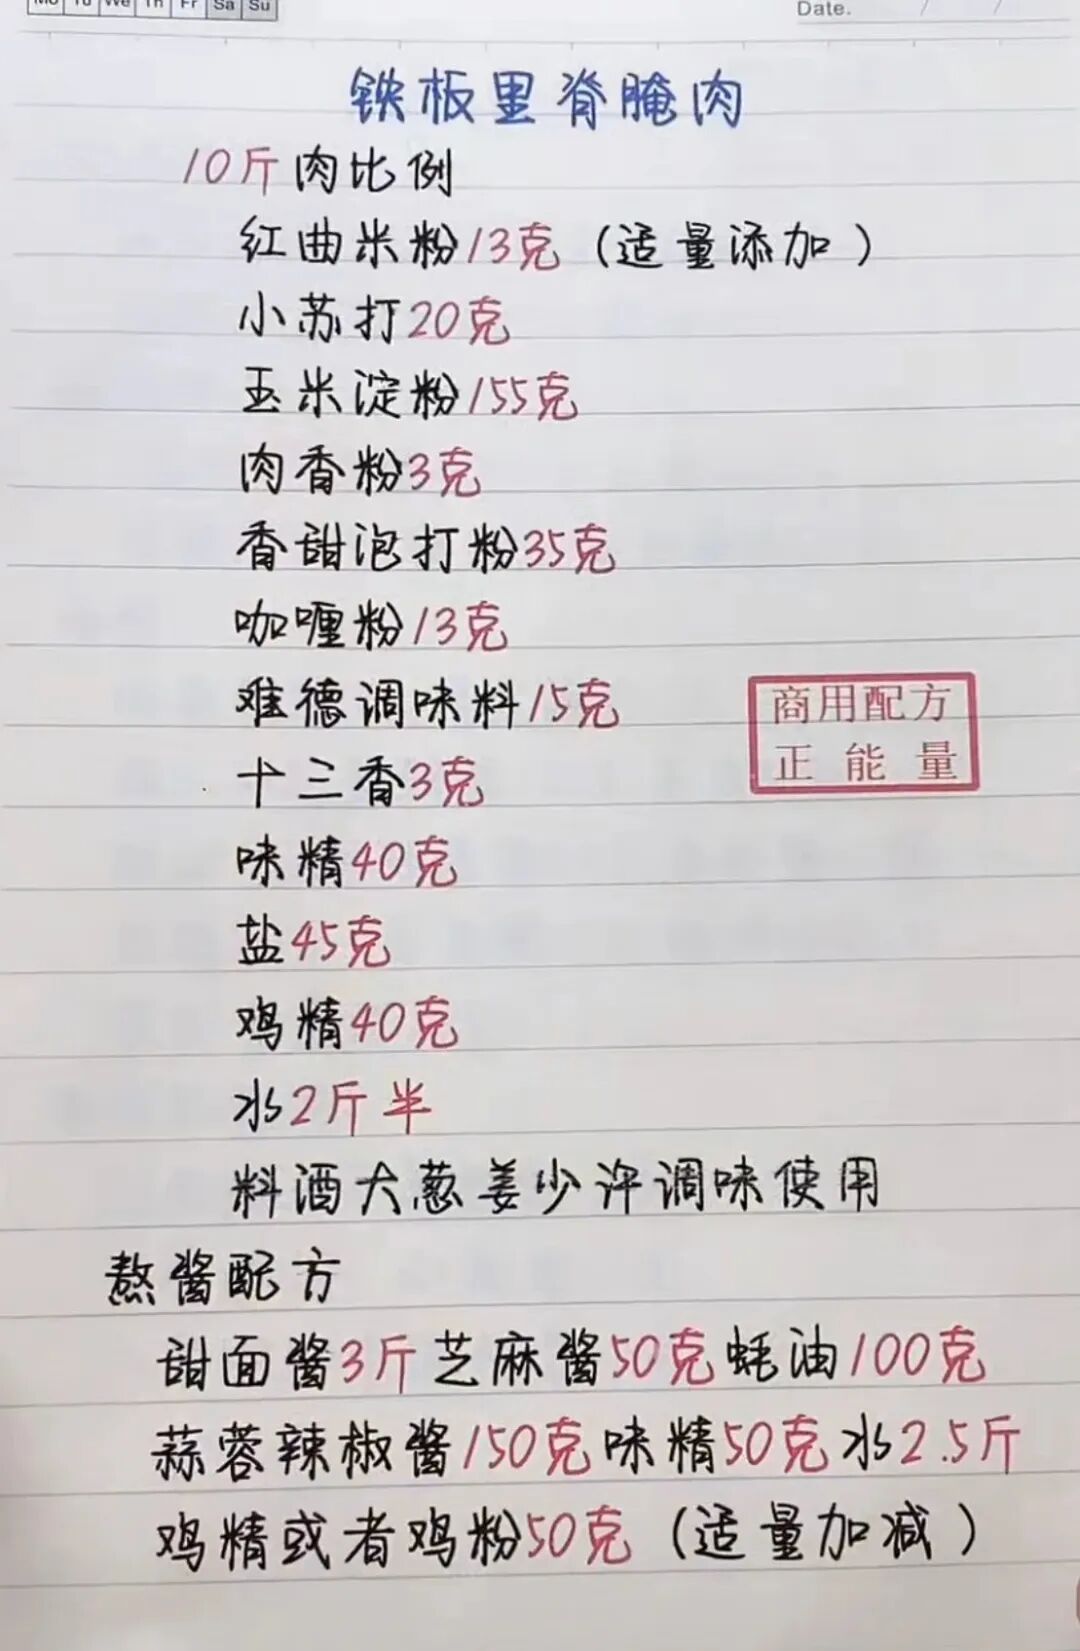 Mo Tu We Th Fr Sa Su
Date. / /
铁板里脊腌肉
10斤肉比例
红曲米粉13克（适量添加）
小苏打20克
玉米淀粉155克
肉香粉3克
香甜泡打粉35克
咖喱粉13克
难德调味料15克
十三香3克
味精40克
盐45克
鸡精40克
水2斤半
料酒大葱姜少许调味使用
熬酱配方
甜面酱3斤芝麻酱50克蚝油100克
蒜蓉辣椒酱150克味精50克水2.5斤
鸡精或者鸡粉50克（适量加减）
商用配方
正能量